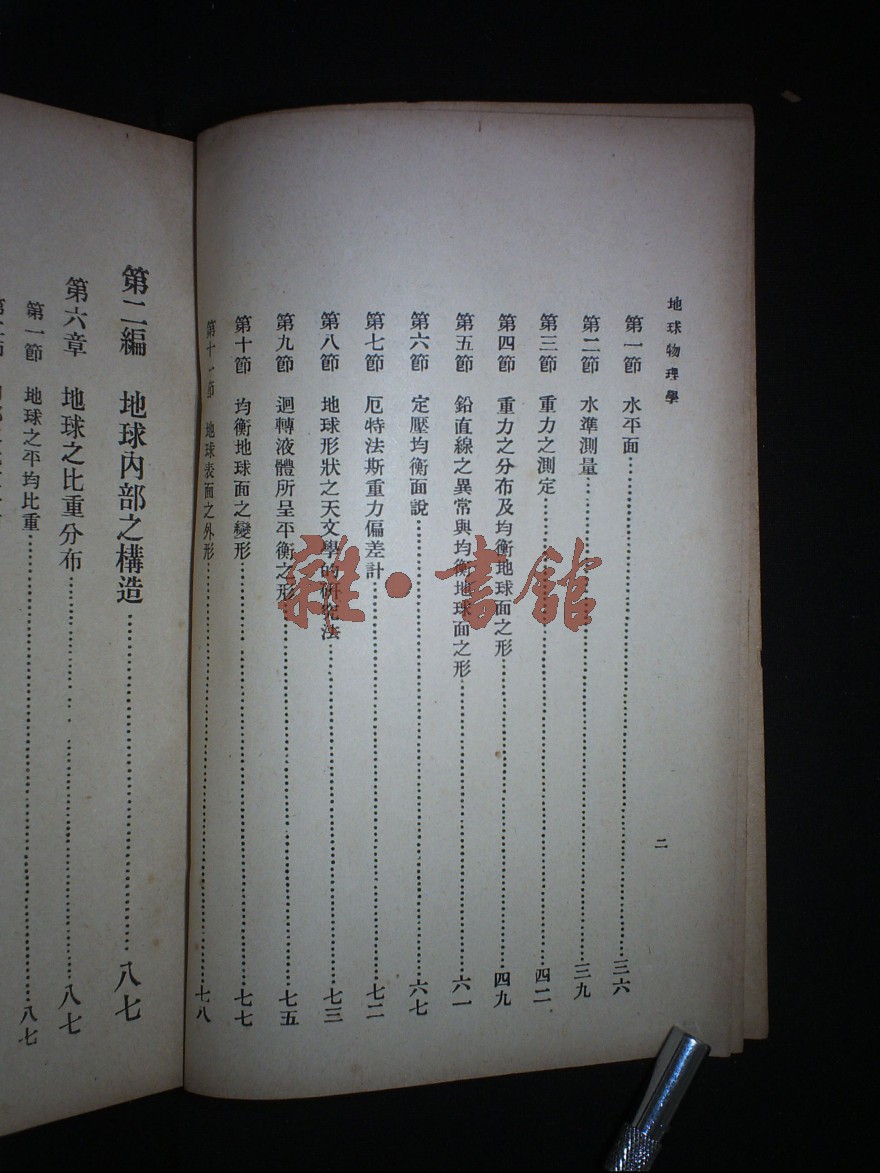 地球物理學
二
第一節 水平面……三六
第二節 水準測量……三九
第三節 重力之測定……四二
第四節 重力之分布及均衡地球面之形……四九
第五節 鉛直線之異常與均衡地球面之形……六一
第六節 定壓均衡面說……六七
第七節 厄特法斯重力偏差計……七二
第八節 地球形狀之天文學的研究法……七三
第九節 迴轉液體所呈平衡之形……七五
第十節 均衡地球面之變形……七七
第十一節 地球表面之外形……七八
第二編 地球內部之構造……八七
第六章 地球之比重分布……八七
第一節 地球之平均比重……八七
雜·書館